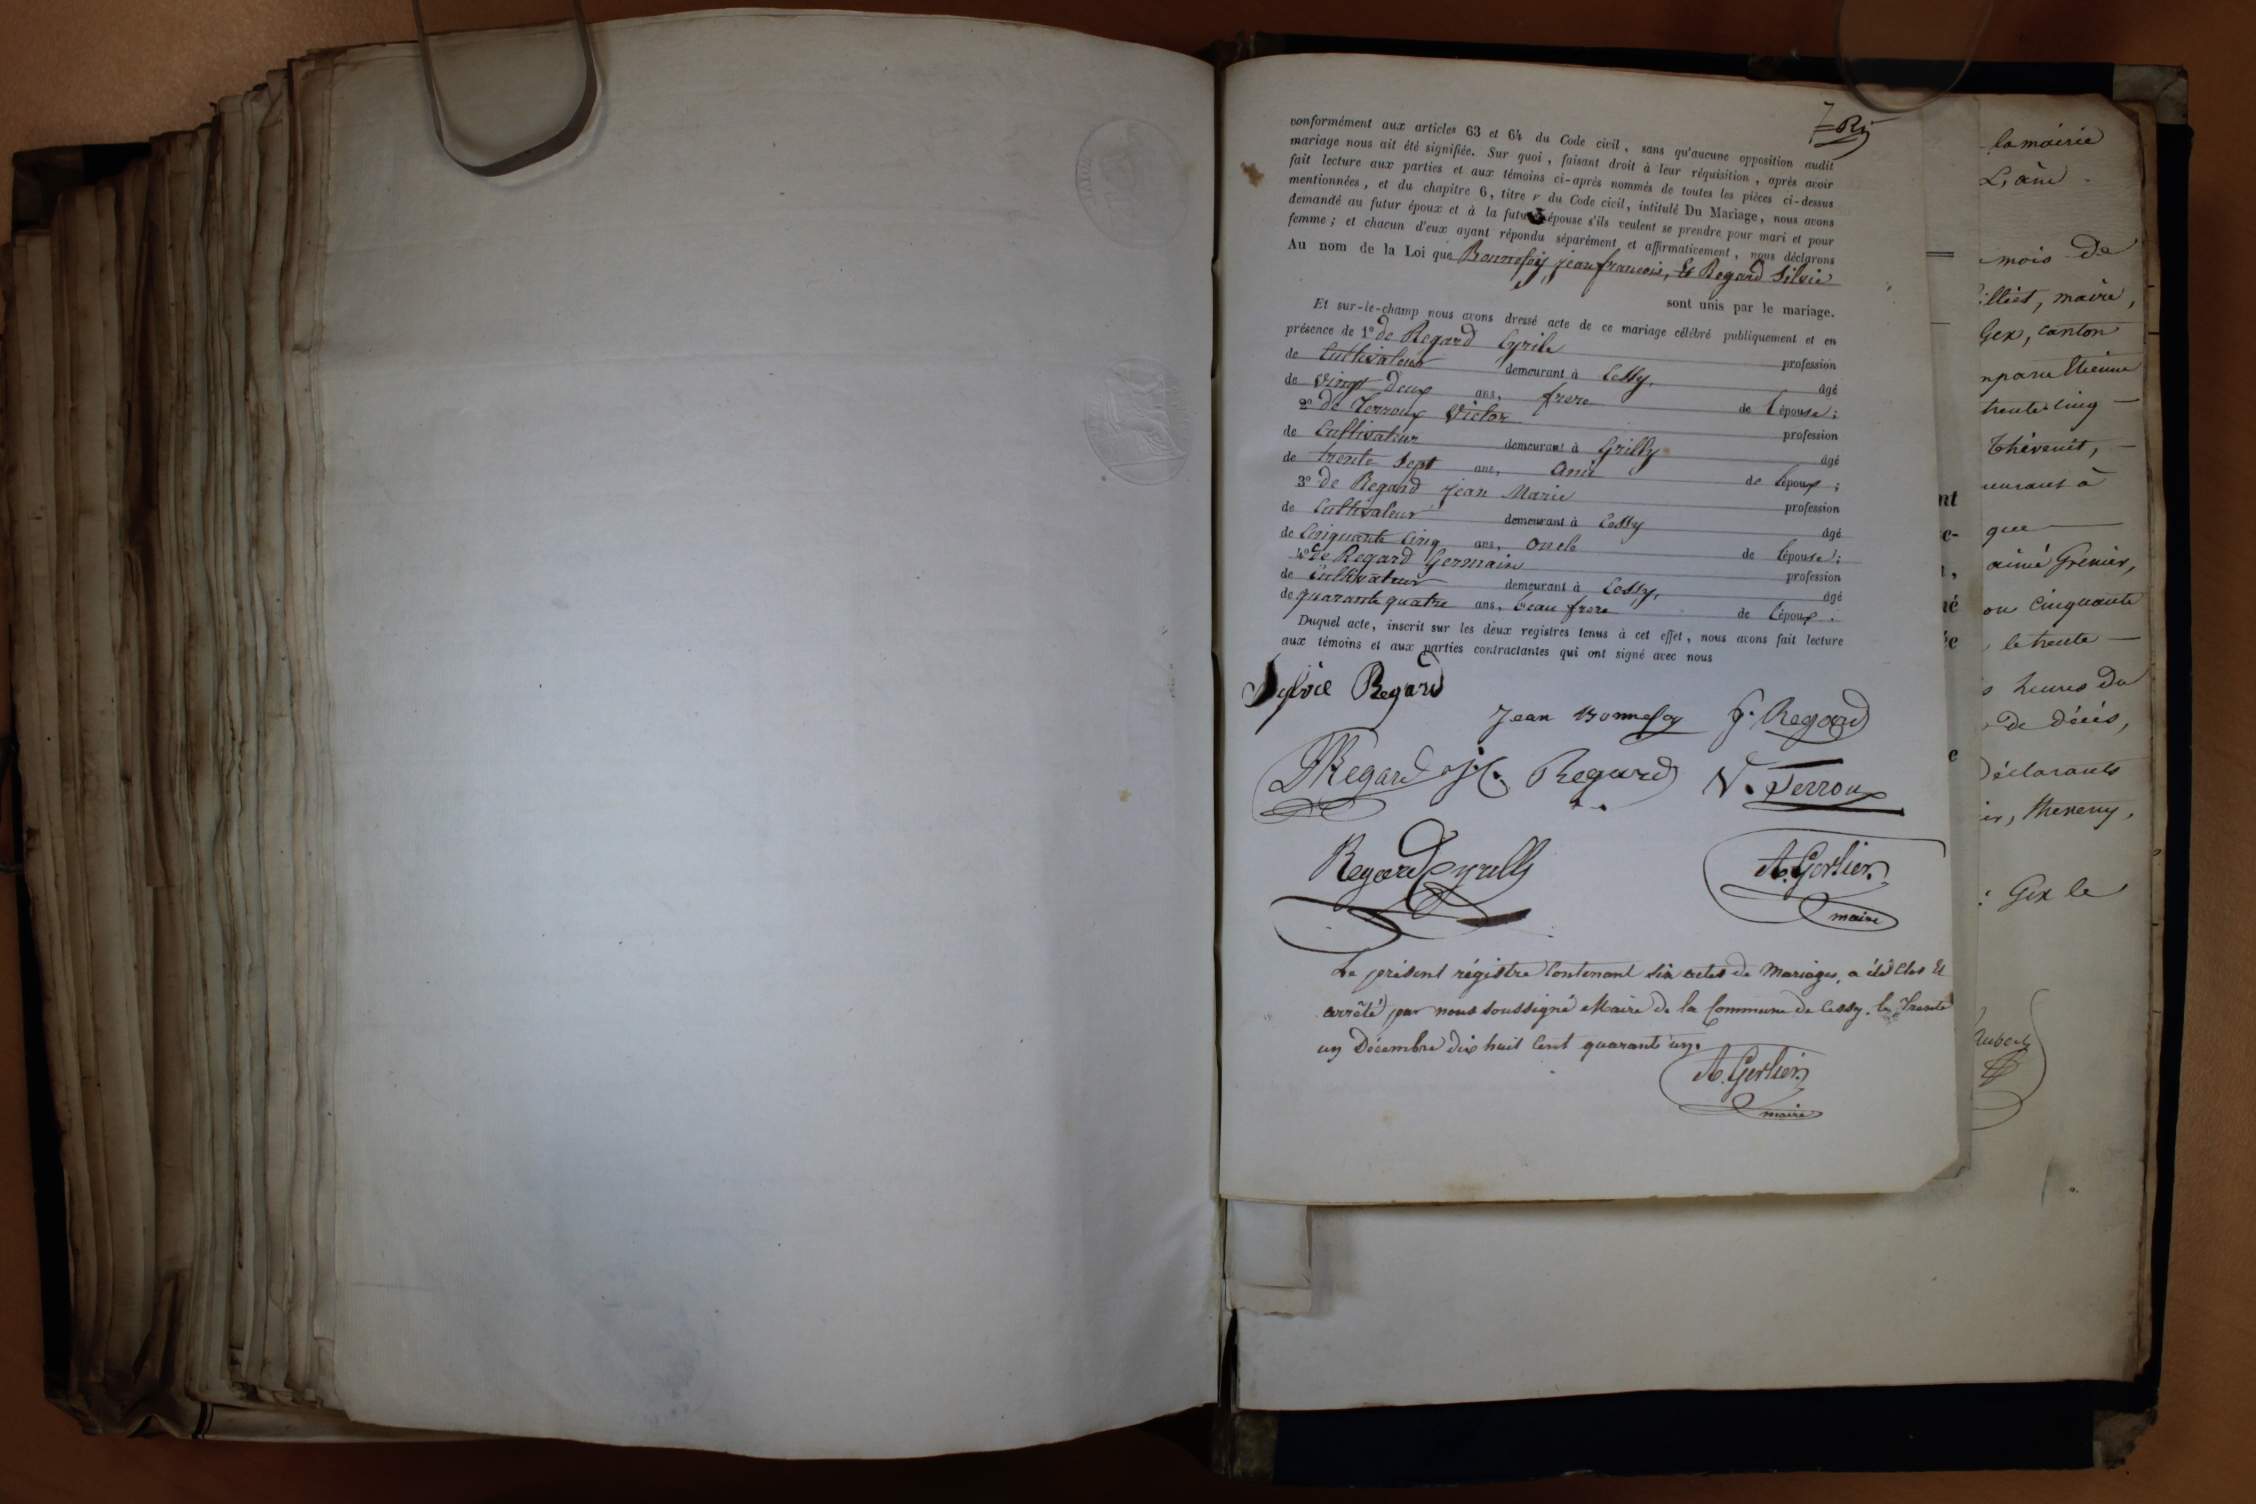 7
conformément aux articles 63 et 64 du Code civil, sans qu'aucune opposition audit
mariage nous ait été signifiée. Sur quoi, faisant droit à leur réquisition, après avoir
fait lecture aux parties et aux témoins ci-après nommés de toutes les pièces ci-dessus
mentionnées, et du chapitre 6, titre v du Code civil, intitulé Du Mariage, nous avons
demandé au futur époux et à la future épouse s'ils veulent se prendre pour mari et pour
femme; et chacun d'eux ayant répondu séparément et affirmativement, nous déclarons
Au nom de la Loi que Bonnefoy, jean françois, Et Regard Silvie
sont unis par le mariage.
Et sur-le-champ nous avons dressé acte de ce mariage célébré publiquement et en
présence de 1º de Regard Cyrile profession
de Cultivateur demeurant à Cessy, âgé
de vingt deux ans, frere de l'épouse;
2º de Perroux Victor profession
de Cultivateur demeurant à Grilly âgé
de trente sept ans, ami de l'époux;
3º de Regard jean Marie profession
de Cultivateur demeurant à Cessy âgé
de Cinquante Cinq ans, oncle de l'épouse;
4º de Regard Germain profession
de Cultivateur demeurant à Cessy, âgé
de quarante quatre ans, beau frere de l'époux.
Duquel acte, inscrit sur les deux registres tenus à cet effet, nous avons fait lecture
aux témoins et aux parties contractantes qui ont signé avec nous
Sylvie Regard
Jean Bonnefoy G. Regard
JM Regard J. C. Regard V. Perroux
Regard Cyrille A. Gerlier
maire
Le présent régistre Contenant six actes de Mariages, a été Clos Et
arrêté par nous soussigné Maire de la Commune de Cessy, le Trente
un Décembre dix huit Cent quarante un.
A. Gerlier
maire
la mairie
L'ain
mois de
maire,
Gex, canton
Etienne
trente cinq
Thévenet,
à
que
aimé Grenier,
ou cinquante
le trente
heures du
de décès,
Déclarants
Gex le